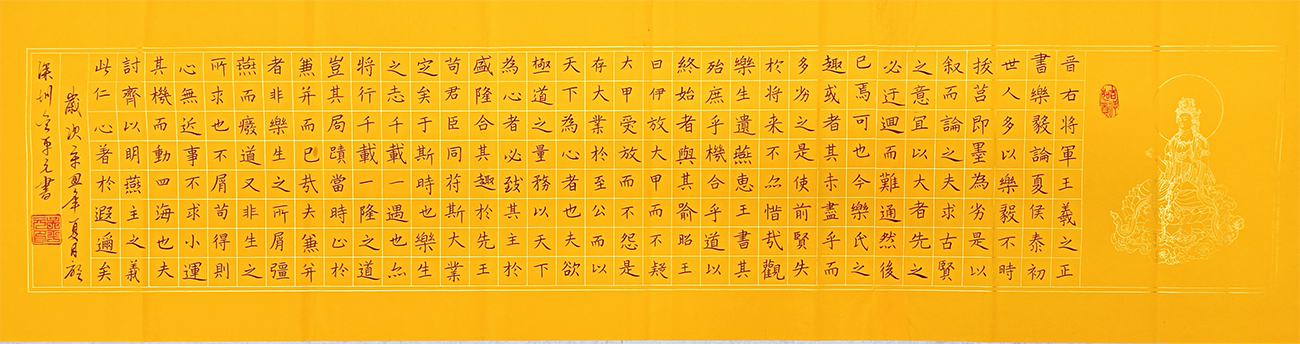 晉右將軍王羲之正
書樂毅論夏侯泰初
世人多以樂毅不時
拔莒即墨為劣是以
叙而論之夫求古賢
之意宜以大者先之
必迂迴而難通然後
已焉可也今樂氏之
趣或者其未盡乎而
多劣之是使前賢失
於將来不亦惜哉觀
樂生遺燕惠王書其
殆庶乎機合乎道以
終始者與其喻昭王
曰伊放大甲而不疑
大甲受放而不怨是
存大業於至公而以
天下為心者也夫欲
極道之量務以天下
為心者必致其主於
盛隆合其趣於先王
苟君臣同苻斯大業
定矣于斯時也樂生
之志千載一遇也亦
將行千載一隆之道
豈其局蹟當時止於
蒹并而已哉夫蒹并
者非樂生之所屑彊
燕而癈道又非生之
所求也不屑苟得則
心無近事不求小運
其機而動四海也夫
討齊以明燕主之義
此仁心著於遐邇矣
歲次辛丑年夏月於
深圳書